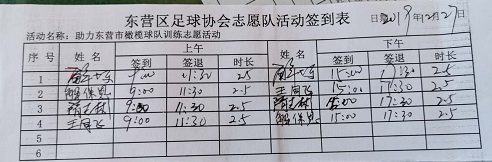 东营区足球协会志愿队活动签到表
日期2019年12月27日
活动名称：助力东营市橄榄球队训练志愿活动
序号 姓名 上午 姓名 下午
签到 签退 时长 签到 签退 时长
1 9:00 11:30 2.5 15:00 17:30 2.5
2 解保忠 9:00 11:30 2.5 王国飞 15:00 17:30 2.5
3 9:00 11:30 2.5 15:00 17:30 2.5
4 王国飞 9:00 11:30 2.5 解保忠 15:00 17:30 2.5
5
6